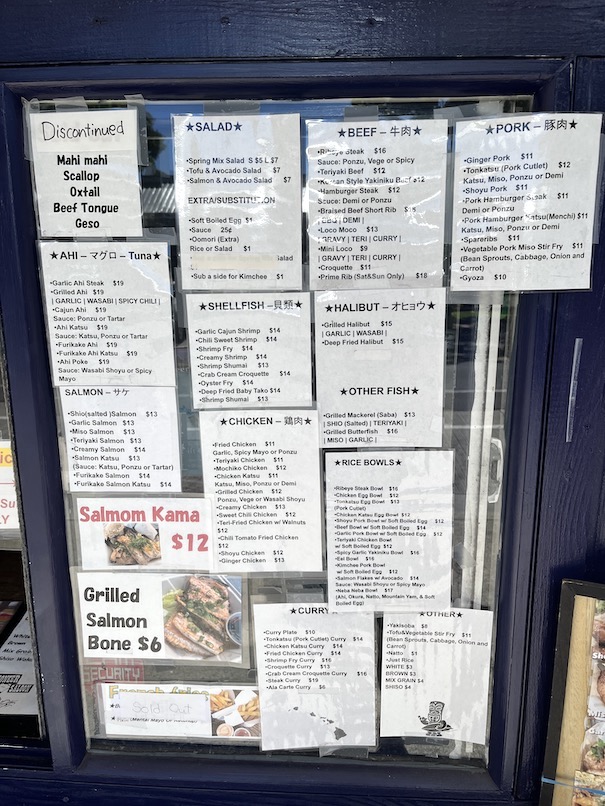 Discontinued
Mahi mahi
Scallop
Oxtail
Beef Tongue
Geso
★SALAD★
•Spring Mix Salad S $5 L $7
•Tofu & Avocado Salad $7
•Salmon & Avocado Salad $7
EXTRA/SUBSTITUTION
•Soft Boiled Egg $1
•Sauce 25¢
•Oomori (Extra)
Rice or Salad $1
•Sub a side for Kimchee $1
★BEEF – 牛肉★
•Ribeye Steak $16
Sauce: Ponzu, Vege or Spicy
•Teriyaki Beef $12
•Korean Style Yakiniku Beef $12
•Hamburger Steak $12
Sauce: Demi or Ponzu
•Braised Beef Short Rib $15
| BBQ | DEMI |
•Loco Moco $13
| GRAVY | TERI | CURRY |
•Mini Loco $9
| GRAVY | TERI | CURRY |
•Croquette $11
•Prime Rib (Sat&Sun Only) $18
★PORK – 豚肉★
•Ginger Pork $11
•Tonkatsu (Pork Cutlet) $12
Katsu, Miso, Ponzu or Demi
•Shoyu Pork $11
•Pork Hamburger Steak $11
Demi or Ponzu
•Pork Hamburger Katsu(Menchi) $11
Katsu, Miso, Ponzu or Demi
•Spareribs $11
•Vegetable Pork Miso Stir Fry $11
(Bean Sprouts, Cabbage, Onion and
Carrot)
•Gyoza $10
★AHI – マグロ – Tuna★
•Garlic Ahi Steak $19
•Grilled Ahi $19
| GARLIC | WASABI | SPICY CHILI |
•Cajun Ahi $19
Sauce: Ponzu or Tartar
•Ahi Katsu $19
Sauce: Katsu, Ponzu or Tartar
•Furikake Ahi $19
•Furikake Ahi Katsu $19
•Ahi Poke $19
Sauce: Wasabi Shoyu or Spicy
Mayo
★SHELLFISH – 貝類★
•Garlic Cajun Shrimp $14
•Chili Sweet Shrimp $14
•Shrimp Fry $14
•Creamy Shrimp $14
•Shrimp Shumai $13
•Crab Cream Croquette $14
•Oyster Fry $14
•Deep Fried Baby Tako $14
•Shrimp Shumai $13
★HALIBUT – オヒョウ★
•Grilled Halibut $15
| GARLIC | WASABI |
•Deep Fried Halibut $15
★OTHER FISH★
•Grilled Mackerel (Saba) $13
| SHIO (Salted) | TERIYAKI |
•Grilled Butterfish $16
| MISO | GARLIC |
SALMON – サケ
•Shio(salted )Salmon $13
•Garlic Salmon $13
•Miso Salmon $13
•Teriyaki Salmon $13
•Creamy Salmon $14
•Salmon Katsu $13
(Sauce: Katsu, Ponzu or Tartar)
•Furikake Salmon $14
•Furikake Salmon Katsu $14
★CHICKEN – 鶏肉★
•Fried Chicken $11
Garlic, Spicy Mayo or Ponzu
•Teriyaki Chicken $11
•Mochiko Chicken $12
•Chicken Katsu $11
Katsu, Miso, Ponzu or Demi
•Grilled Chicken $12
Ponzu, Vege or Wasabi Shoyu
•Creamy Chicken $13
•Sweet Chili Chicken $12
•Teri-Fried Chicken w/ Walnuts
$12
•Chili Tomato Fried Chicken
$12
•Shoyu Chicken $12
•Ginger Chicken $13
★RICE BOWLS★
•Ribeye Steak Bowl $16
•Chicken Egg Bowl $12
•Tonkatsu Egg Bowl $13
(Pork Cutlet)
•Chicken Katsu Egg Bowl $12
•Shoyu Pork Bowl w/ Soft Boiled Egg $12
•Beef Bowl w/ Soft Boiled Egg $14
•Garlic Pork Bowl w/ Soft Boiled Egg $12
•Teriyaki Chicken Bowl
w/ Soft Boiled Egg $12
•Spicy Garlic Yakiniku Bowl $16
•Eel Bowl $16
•Kimchee Pork Bowl
w/ Soft Boiled Egg $12
•Salmon Flakes w/ Avocado $14
Sauce: Wasabi Shoyu or Spicy Mayo
•Neba Neba Bowl $17
(Ahi, Okura, Natto, Mountain Yam, & Soft
Boiled Egg)
Salmom Kama
$12
Grilled
Salmon
Bone $6
★CURRY
•Curry Plate $10
•Tonkatsu (Pork Cutlet) Curry $14
•Chicken Katsu Curry $14
•Fried Chicken Curry $14
•Shrimp Fry Curry $16
•Croquette Curry $13
•Crab Cream Croquette Curry $16
•Steak Curry $19
•Ala Carte Curry $6
★OTHER★
•Yakisoba $8
•Tofu&Vegetable Stir Fry $11
(Bean Sprouts, Cabbage, Onion and
Carrot)
•Natto $1
•Just Rice
WHITE $3
BROWN $3
MIX GRAIN $4
SHISO $4
SECURITY
Sold Out